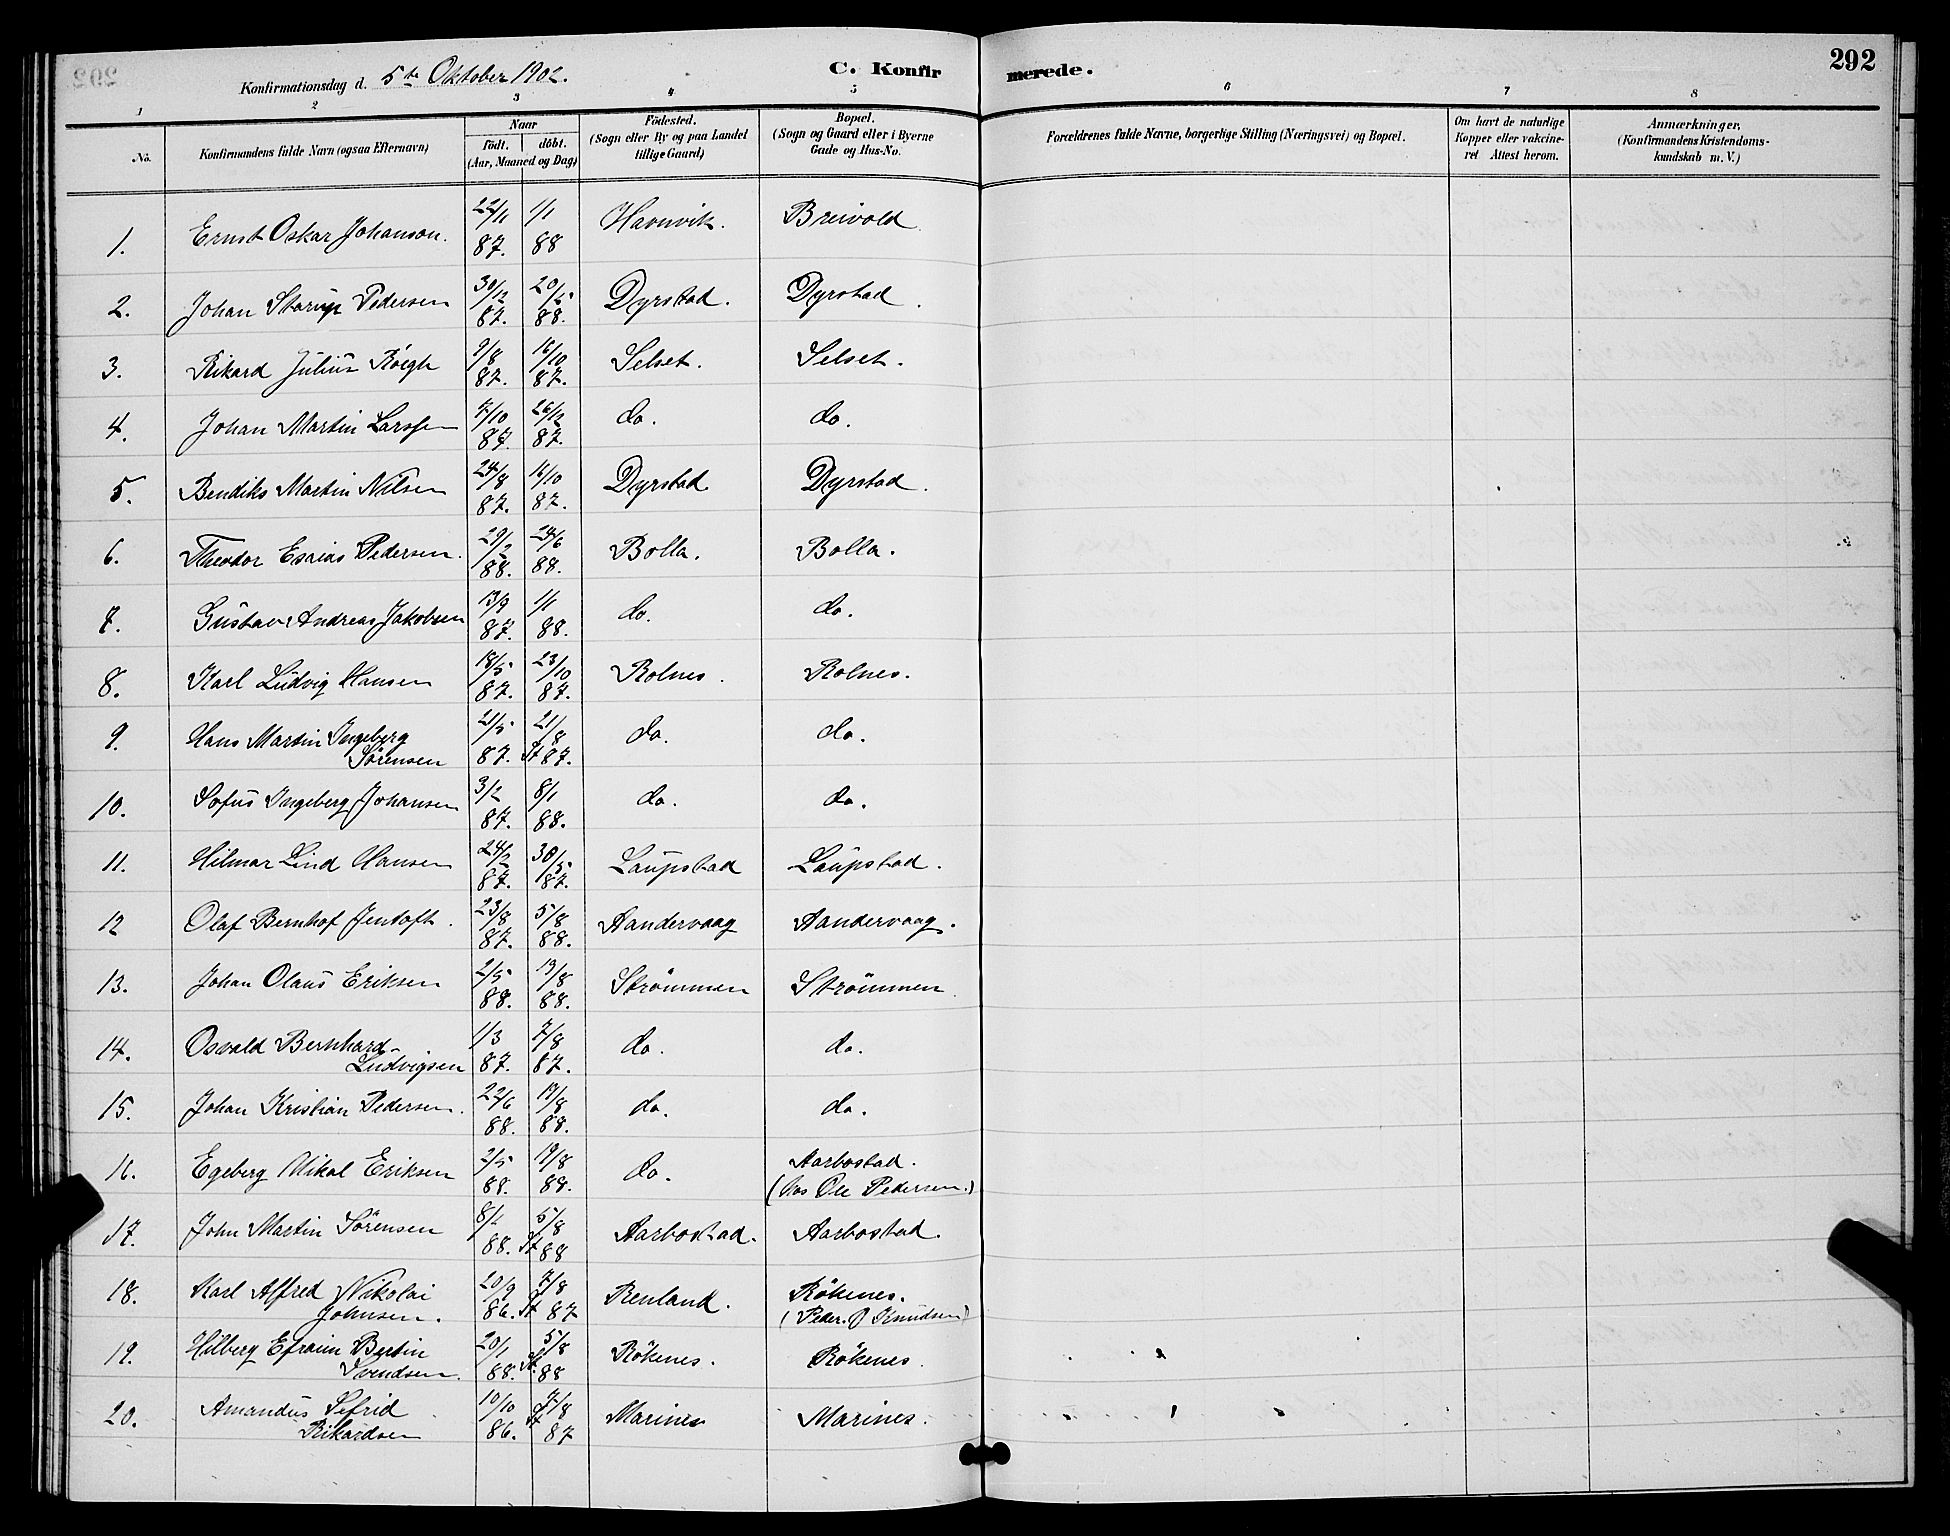 292
Konfirmationsdag d. 5te Oktober 1902.
C. Konfir merede.
1 2 3 4 5 6 7 8
No.
Konfirmandens fulde Navn (ogsaa Efternavn)
Naar
født. døbt.
(Aar, Maaned og Dag)
Fødested.
(Sogn eller By og paa Landet
tillige Gaard)
Bopæl.
(Sogn og Gaard eller i Byerne
Gade og Hus-No.
Forældrenes fulde Navne, borgerlige Stilling (Næringsvei) og Bopæl.
Om havt de naturlige
Kopper eller vakcine-
ret Attest herom.
Anmærkninger,
(Konfirmandens Kristendoms-
kundskab m. V.)
1. Ernst Oskar Johanson. 22/11 87. 1/1 88 Havnvik. Breivold
2. Johan Starup Pedersen 30/12 87. 20/5 88. Dyrstad. Dyrstad.
3. Rikard Julius Røigh 9/8 87. 16/10 87. Selset. Selset.
4. Johan Martin Larssen 7/10 87. 26/12 87. do. do.
5. Bendiks Martin Nilsen 24/8 87. 16/10 87. Dyrstad. Dyrstad.
6. Theodor Esaias Pedersen. 29/2 88. 24/6 88. Bolla. Bolla.
7. Gustav Andreas Jakobsen 13/9 87. 1/1 88. do. do.
8. Karl Ludvig Hansen 18/5 87. 23/10 87. Rolnes. Rolnes.
9. Hans Martin Ingeberg 21/5 87. 21/8 St 87. do. do.
Sørensen
10. Sofus Ingeberg Johansen 3/2 87. 8/1 88. do. do.
11. Hilmar Lind Hansen 24/2 87. 30/5 87. Laupstad Laupstad.
12 Olaf Bernhof Jentoft. 23/8 87. 5/8 88. Aandervaag Aandervaag.
13. Johan Olaus Eriksen 2/5 88. 19/8 88. Strømmen Strømmen
14. Osvald Bernhard 1/3 87. 7/8 87. do. do.
Ludvigsen
15. Johan Kristian Pedersen. 22/6 88. 19/8 88. do. do.
16. Egeberg Mikal Eriksen 2/5 88. 19/8 88. do. Aarbostad.
(hos Ole Pedersen.)
17. John Martin Sørensen 8/1 88. 5/8 St 88 Aarbostad. Aarbostad.
18. Karl Alfred Nikolai 20/9 86. 7/8 St 87 Renland. Røkenes.
Johnsen. (Peder O Knudsen)
19. Hilberg Efraim Bertin 20/1 88. 5/8 St. 88 Røkenes. Røkenes.
Svendsen.
20. Amandus Sefrid 10/10 86. 7/8 St 87 Marines Marines.
Rikardsen